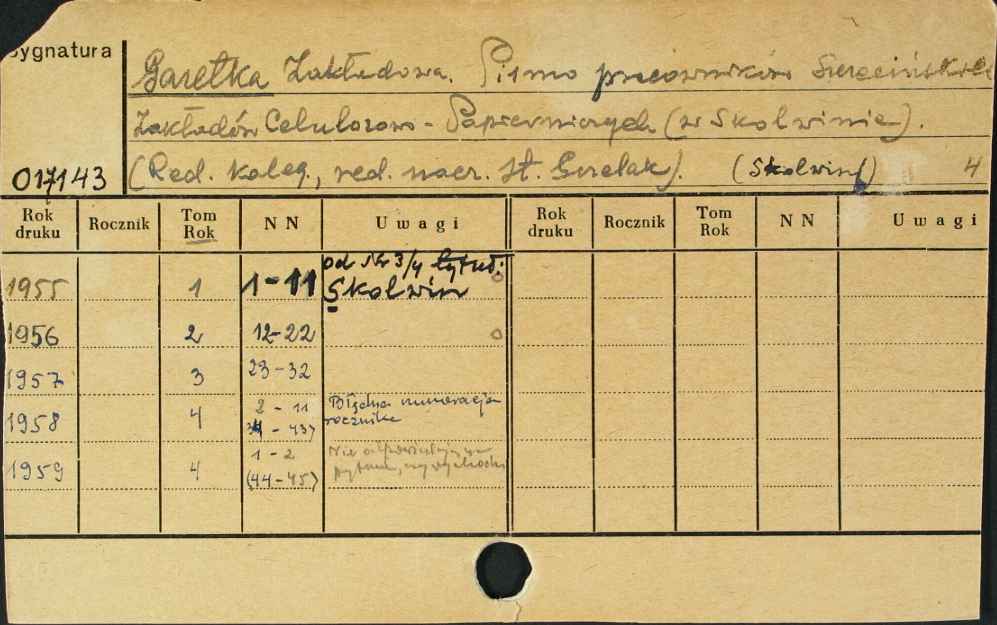 Sygnatura
Gazetka Zakładowa. Pismo pracowników Szczecińskich
Zakładów Celulozowo-Papierniczych (w Skolwinie).
017143 (Red. koleg., red. nacz. St. Grelak). (Skolwin) 4
Rok druku Rocznik Tom Rok NN Uwagi Rok druku Rocznik Tom Rok NN Uwagi
od Nr 3/4 tytuł:
1955 1 1-11 Skolwin
1956 2 12-22
1957 3 23-32
1958 4 2 - 11 Błędna numeracja
34 - 43) rocznika
1959 4 1 - 2 Nie odpowiadają na
(44-45) pytanie, czy wychodzi